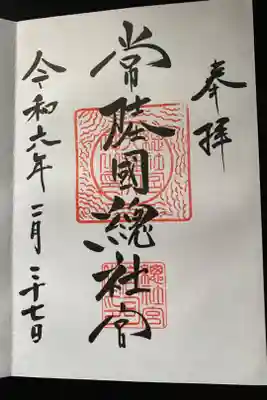 奉拝
常陸國總社宮
令和六年二月二十七日